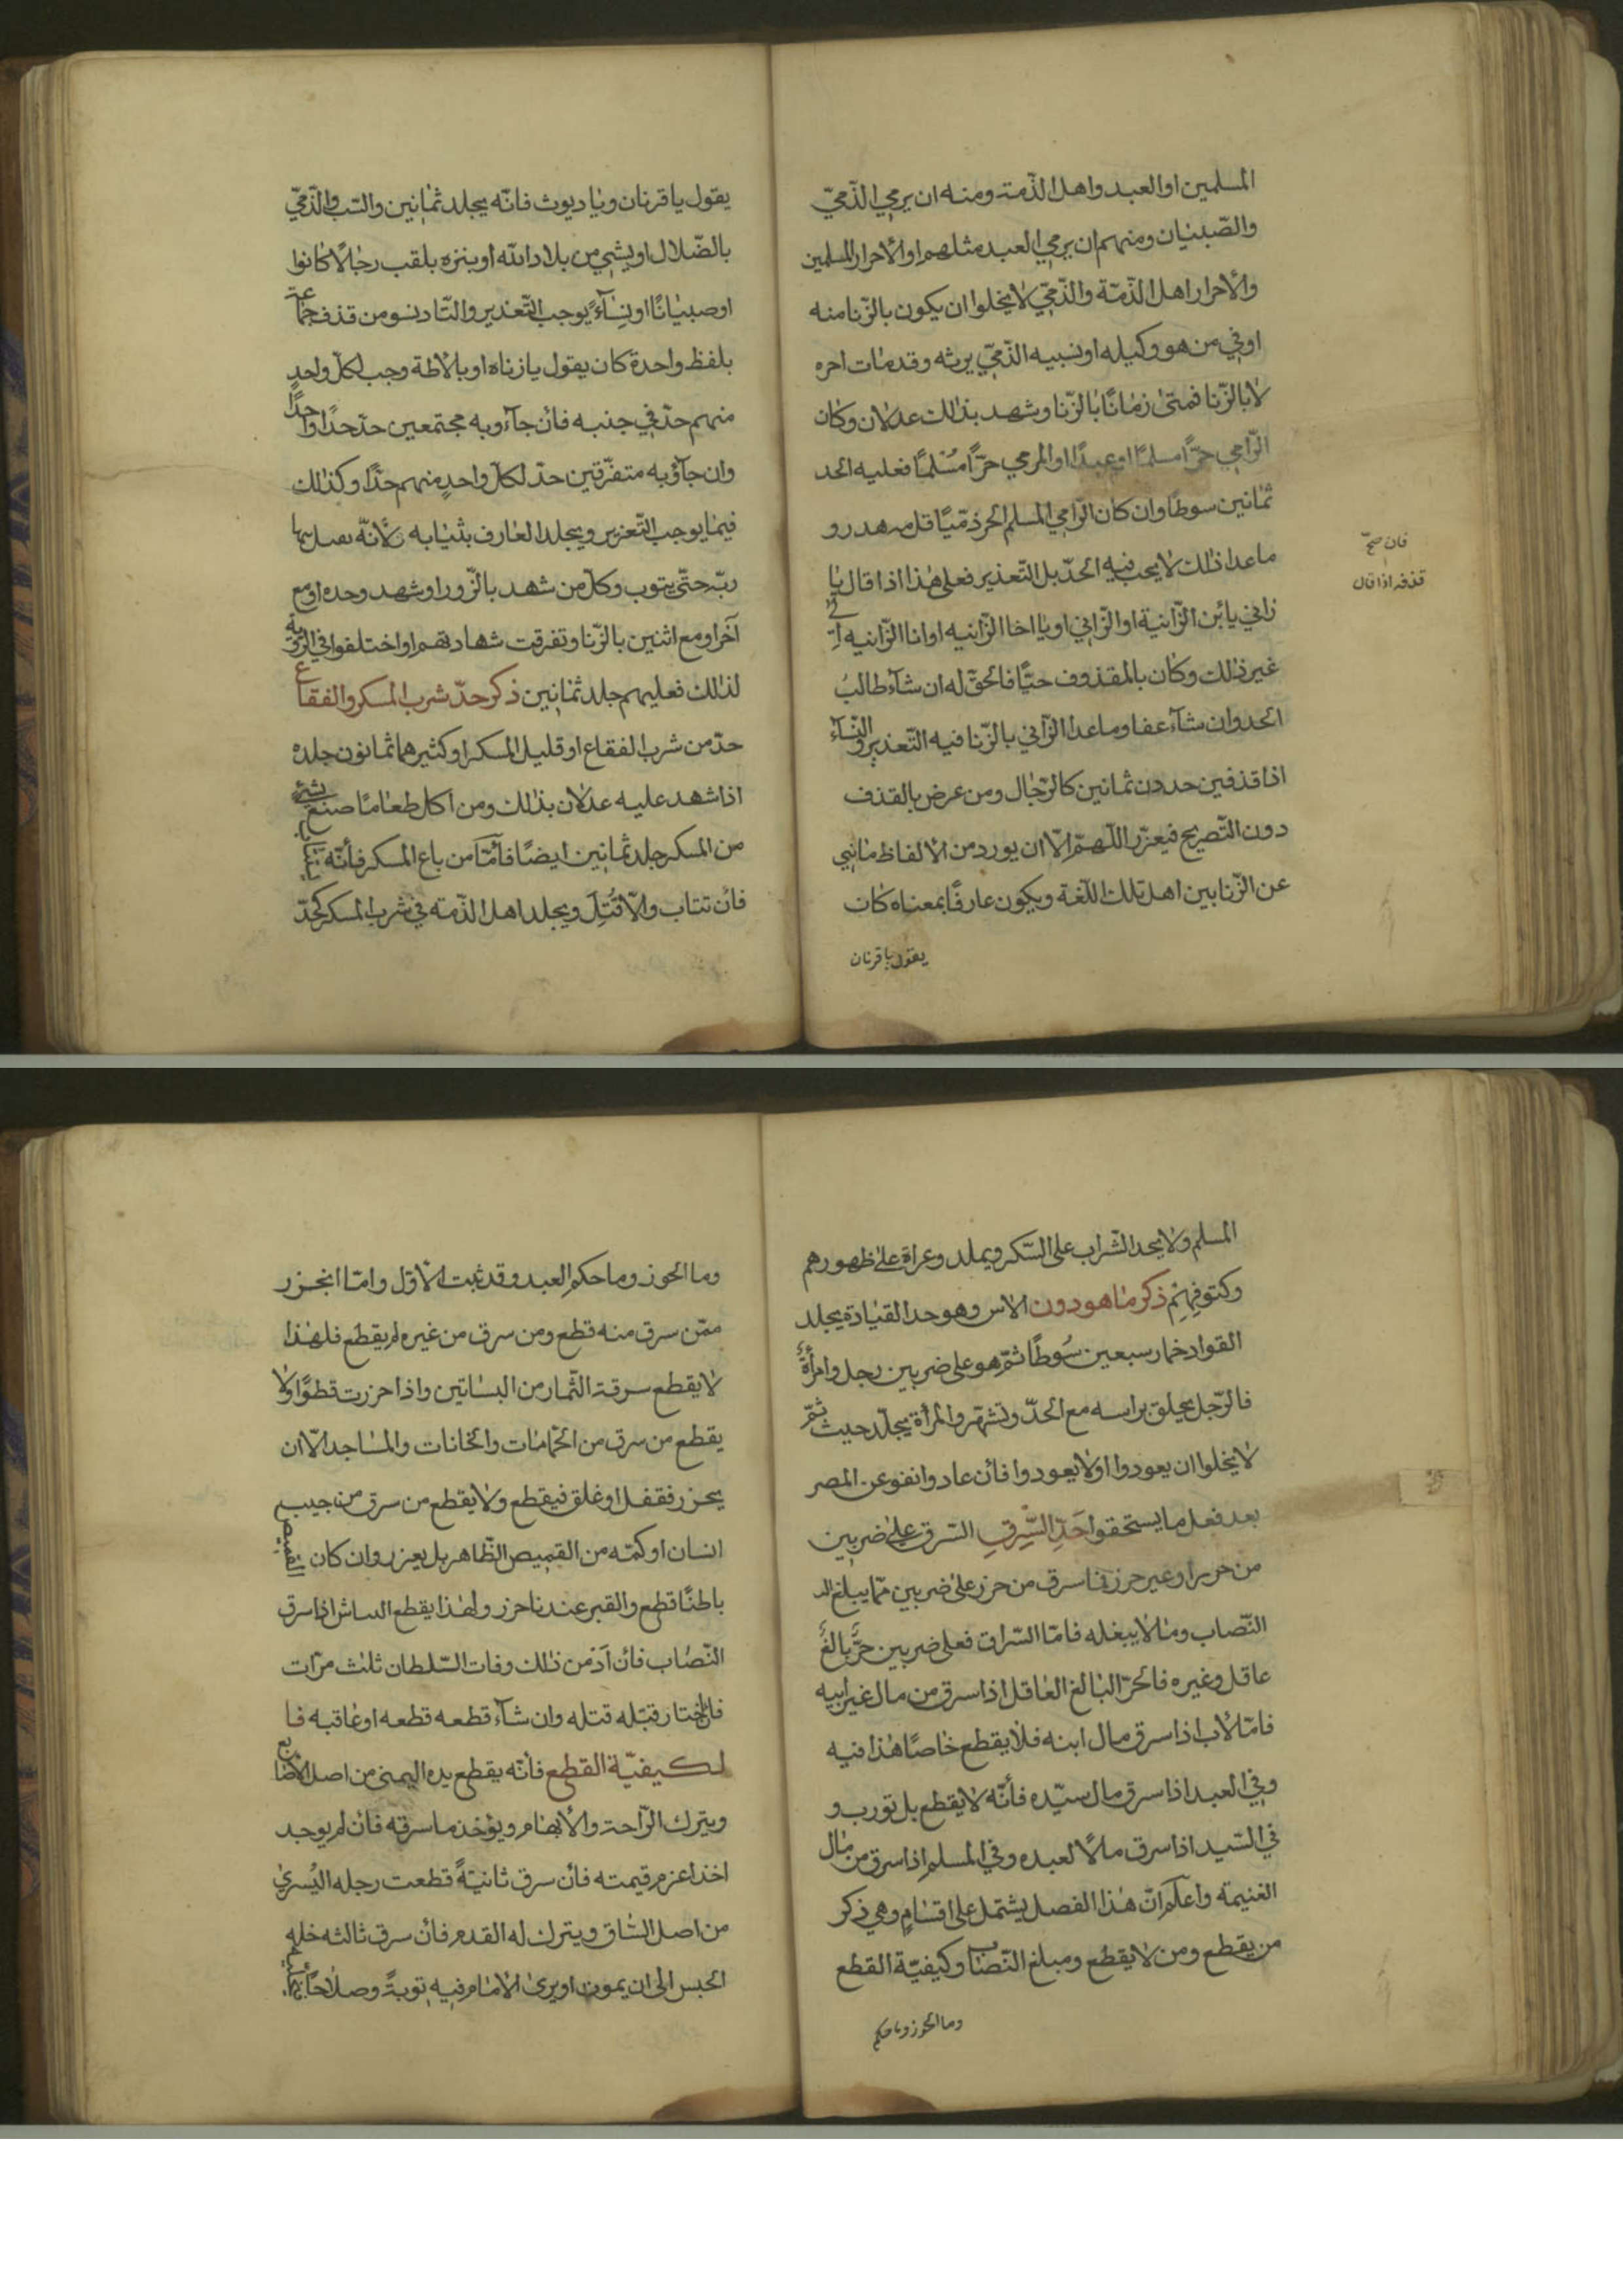 المسلمين او العبد واهل الذّمة ومنه ان يرمي الذّميّ
والصّبيان ومنهم ان يرمي العبد مثلهم او الأحرار المسلمين
والأحرار اهل الذّمّة والذّميّ لا يخلوا ان يكون بالزّنا منه
اوفي من هو وكيله او نسيبه الذّميّ يرثه وقد مات احره
لا بالزّنا فمتى زمانًا بالزّنا وشهد بذلك عدلان وكان
الرّامي حرًّا مسلمًا او عبدًا او المرمي حرًّا مُسْلمًا فعليه الحد
ثمانين سوطًا وان كان الرّامي المسلم الحر ذمّيًا قل
ما عدا ذلك لا يجب فيه الحدّ بل التّعذير فعلى هذا اذا قال يا
فان صحّ
قذفه اذا قال
زاني يا ابن الزّانية او الزّاني او يا اخا الزّانيه او انا الزّانيه
غير ذلك وكان بالمقذوف حيًّا فالحقّ له ان شاء طالبُ
الحد وان شاء عفا وما عدا الزّاني بالزّنا فيه التّعذير والنّساء
اذا قذفين حددن ثمانين كالرّجال ومن عرض بالقذف
دون التّصريح فيعزّر اللّهمّ إلّا ان يورد من الألفاظ ما نبي
عن الزّنا بين اهل تلك اللّغة ويكون عارفًا بمعناه كان
يقول يا قرنان
يقول يا قرنان ويا ديوث فانّه يجلد ثمانين والسّب والذّميّ
بالضّلال او يشبي من بلاد الله او ينزه بلقب رجالًا كانوا
او صبيانًا او نساءً يوجب التّعذير والتّاديبو من قذف جماعة
بلفظ واحدة كان يقول يا زناه او يا لاطة وجب لكلّ واحدٍ
منهم حدّ في جنبه فان جاءو به مجتمعين حدّ حدًّا واحدًا
وان جآؤ به متفرّقين حدّ لكلّ واحدٍ منهم حدًّا وكذلك
فيما يوجب التّعزير ويجلد العارف بثيابه لأنّه
ربّه حتّى يتوب وكلّ من شهد بالزّور او شهد وحده او مع
آخر او مع اثنين بالزّنا وتفرقت شهادتهم او اختلفوا في الرّؤية
لذلك فعليهم جلد ثمانين ذكر حدّ شرب المسكر والفقاع
حدّ من شرب الفقاع او قليل المسكر او كثيرهما ثمانون جلده
اذا شهد عليه عدلان بذلك ومن اكل طعامًا صنع بشيء
من المسكر جلد ثمانين ايضًا فأمّا من باع المسكر فأنّه يستتاب
فأن تتاب والّا قُتِلَ ويجلد اهل الذّمه في شرب المسكر كحدّ
المسلم ولا يحد الشّراب على السّكر ويملد وعراة على ظهورهم
وكتوفهِمْ ذكر ما هو دون الاس وهو حد القيادة يجلد
القواد خمار سبعين سُوطًا ثمّ هو على ضربين رجل وامرأةٌ
فالرّجل يحلق براسه مع الحدّ وتشهّر والمرأة يجلّد حيث ثمّ
لا يخلوا ان يعودوا او لا يعودوا فأن عادوا نفو عن المصر
بعد فعل ما يستحقوا حَدّ السّرِقِ السّرق على ضربين
من حرز او غير حرز فما سرق من حرز على ضربين ممّا يبلغ
النّصاب وما لا يبغله فامّا السّراق فعلى ضربين حرٌّ بالغٌ
عاقل وغيره فالحرّ البالغ العاقل اذا سرق من مال غير ابيه
فامّا لأب اذا سرق مال ابنه فلا يقطع خاصًا هذا فيه
وفي العبد اذا سرق مال سيّده فأنّه لا يقطع بل تورب و
في السّيد اذا سرق ملًا لعبده وفي المسلم اذا سرق من مال
الغنيمة واعلم انّ هذا الفصل يشتمل على اقسامٍ وهي ذكر
من يقطع ومن لا يقطع ومبلغ النّصاب وكيفيّة القطع
وما الحوز وما حكم
وما الحوز وما حكم العبد وقد ثبت الأوّل وامّا انجزر
ممّن سرق منه قطع ومن سرق من غيره لم يقطع فلهذا
لا يقطع سرقة الثّمار من البساتين واذا حرزت قطوًّا ولا
يقطع من سرق من الحمّامات والخانات والمساجد الّا ان
يحزر فقفل او غلق فيقطع ولا يقطع من سرق من جيب
انسان او كمّه من القميص الظّاهر بل يعزر وان كان القميص
باطنًا قطع والقبر عندنا حرز ولهذا يقطع النباش اذا سرق
النّصاب فأن اذ من ذلك وفات السّلطان ثلث مرّات
فان اختار قتله قتله وان شاء قطعه قطعه او عاقبه فا
لكيفيّة القطع فأنّه يقطع يده اليمنى من اصل الأصابع
ويترك الرّاحة والأبهام ويؤخذ ما سرقه فأن لم يوجد
اخذ اعزم قيمته فأن سرق ثانيةً قطعت رجله اليُسرىٰ
من اصل السّاق ويترك له القدم فأن سرق ثالثه خله
الحبس الى ان يموت او يرىٰ الأمام فيه توبةً وصلاحًا